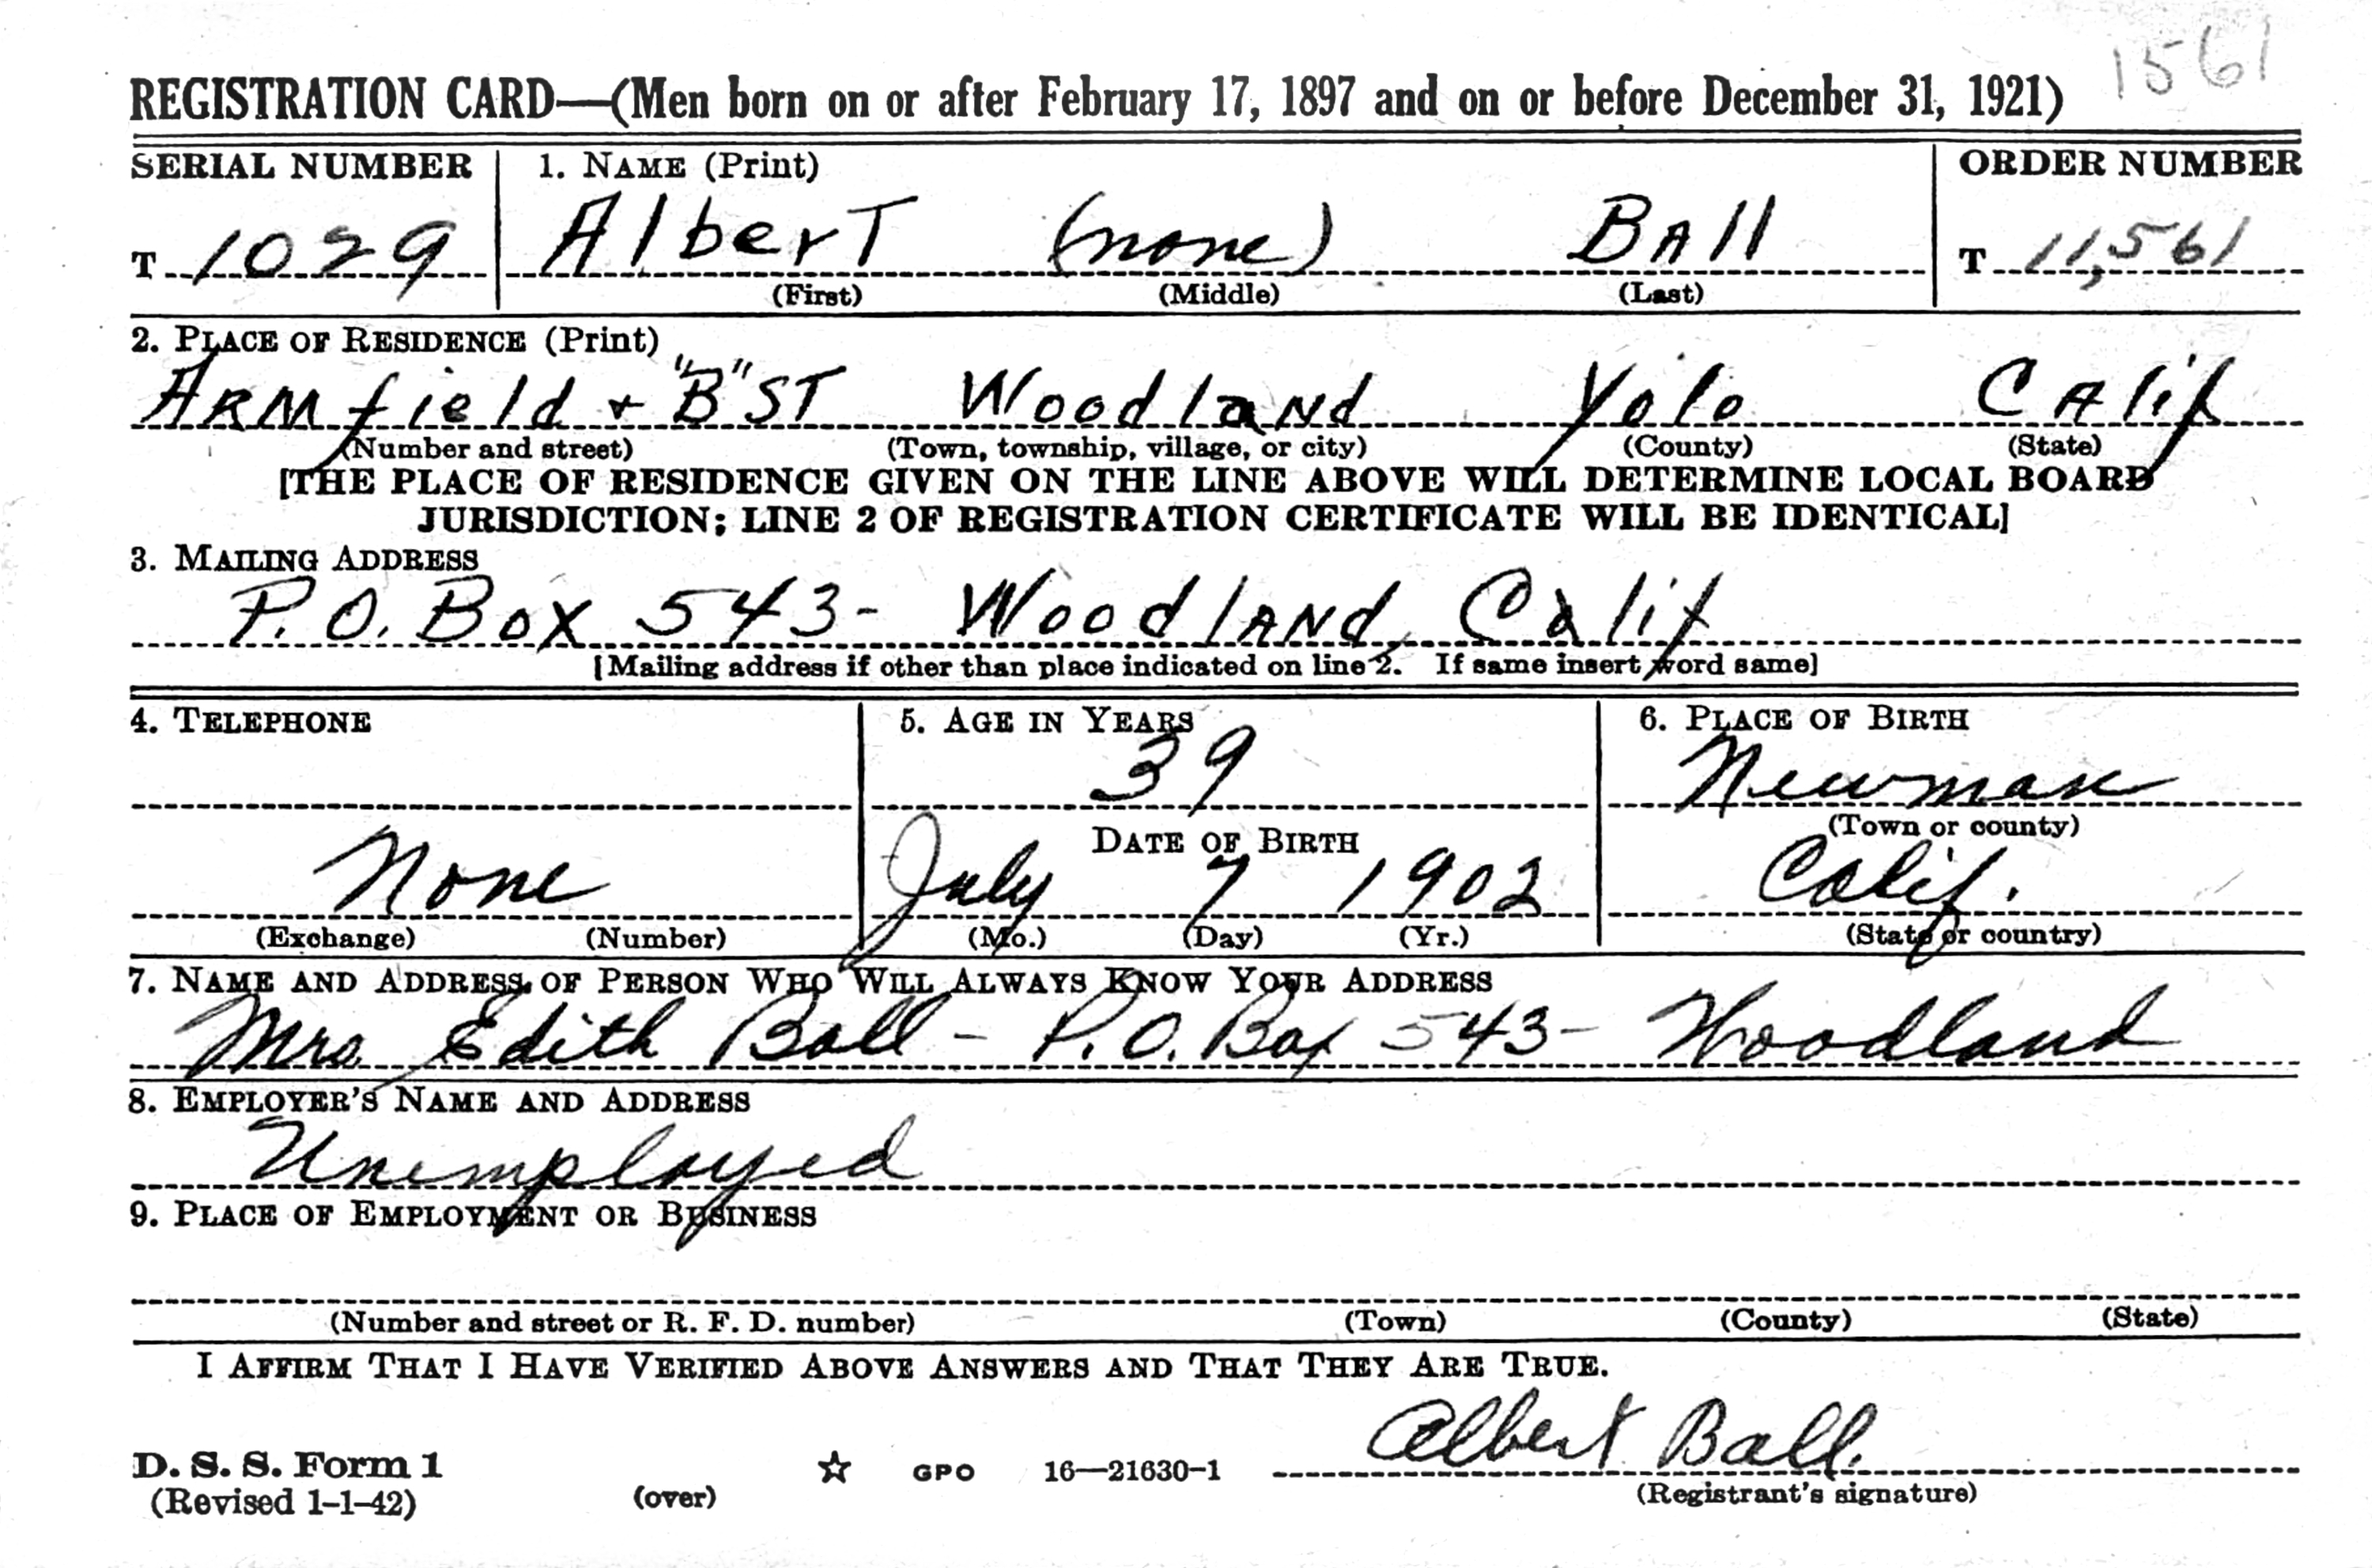 1561
REGISTRATION CARD—(Men born on or after February 17, 1897 and on or before December 31, 1921)
SERIAL NUMBER 1. NAME (Print) ORDER NUMBER
T 1029 Albert (none) Ball T 11,561
(First) (Middle) (Last)
2. PLACE OF RESIDENCE (Print)
Armfield + "B" ST Woodland Yolo Calif
(Number and street) (Town, township, village, or city) (County) (State)
[THE PLACE OF RESIDENCE GIVEN ON THE LINE ABOVE WILL DETERMINE LOCAL BOARD
JURISDICTION; LINE 2 OF REGISTRATION CERTIFICATE WILL BE IDENTICAL]
3. MAILING ADDRESS
P.O. Box 543- Woodland, Calif
[Mailing address if other than place indicated on line 2. If same insert word same]
4. TELEPHONE 5. AGE IN YEARS 6. PLACE OF BIRTH
39 Newman
DATE OF BIRTH (Town or county)
None July 7 1902 Calif.
(Exchange) (Number) (Mo.) (Day) (Yr.) (State or country)
7. NAME AND ADDRESS OF PERSON WHO WILL ALWAYS KNOW YOUR ADDRESS
Mrs Edith Ball - P.O. Box 543- Woodland
8. EMPLOYER'S NAME AND ADDRESS
Unemployed
9. PLACE OF EMPLOYMENT OR BUSINESS
(Number and street or R. F. D. number) (Town) (County) (State)
I AFFIRM THAT I HAVE VERIFIED ABOVE ANSWERS AND THAT THEY ARE TRUE.
Albert Ball.
D. S. S. Form 1 GPO 16—21630-1
(Revised 1-1-42) (over) (Registrant's signature)